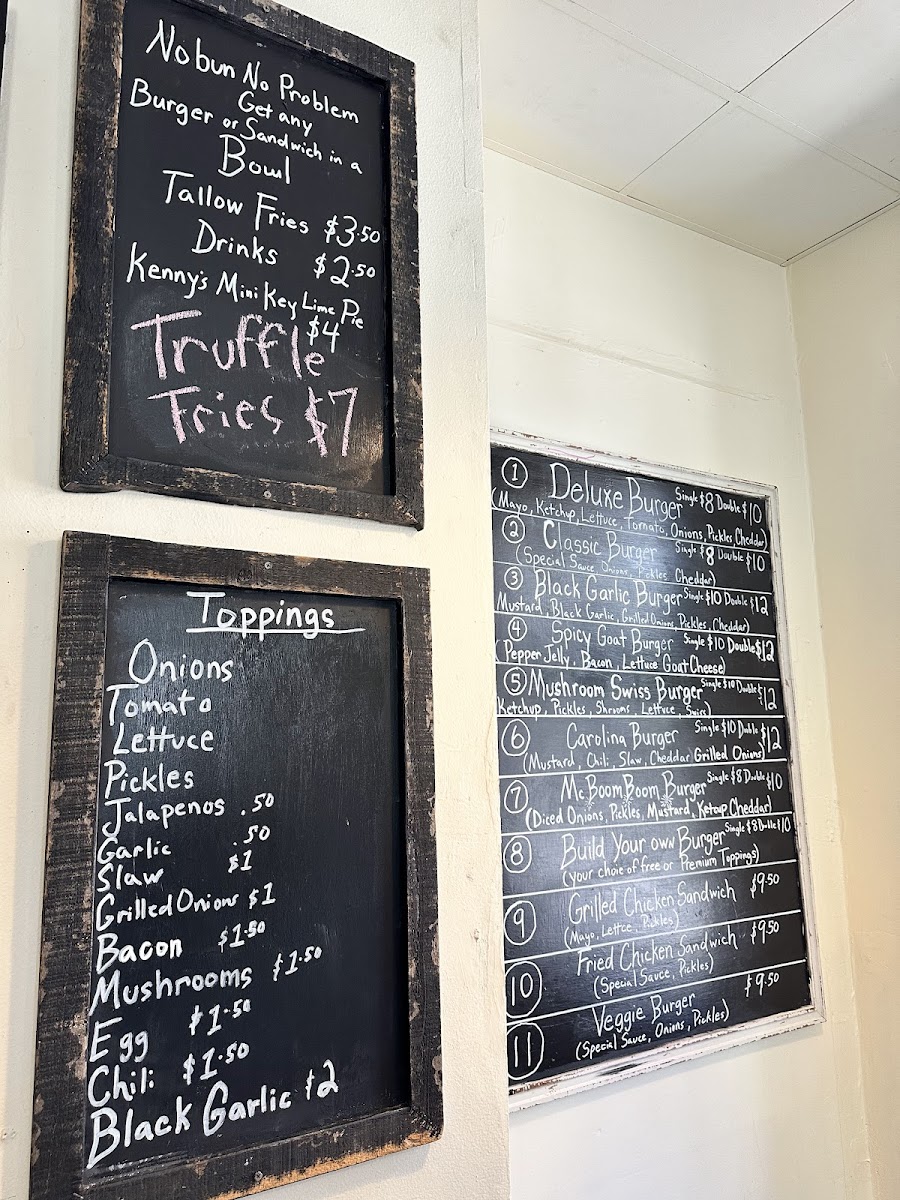 Nobun No Problem
Get any
Burger or Sandwich in a
Bowl
Tallow Fries $3.50
Drinks $2.50
Kenny's Mini Key Lime Pie
$4
Truffle
Fries $7
Toppings
Onions
Tomato
Lettuce
Pickles
Jalapenos .50
Garlic .50
Slaw $1
Grilled Onions $1
Bacon $1.50
Mushrooms $1.50
Egg $1.50
Chili $1.50
Black Garlic $2
1 Deluxe Burger Single $8 Double $10
(Mayo, Ketchup, Lettuce, Tomato, Onions, Pickles, Cheddar)
2 Classic Burger Single $8 Double $10
(Special Sauce Onions, Pickles, Cheddar)
3 Black Garlic Burger Single $10 Double $12
Mustard, Black Garlic, Grilled Onions, Pickles, Cheddar)
4 Spicy Goat Burger Single $10 Double $12
Pepper Jelly, Bacon, Lettuce Goat Cheese)
5 Mushroom Swiss Burger Single $10 Double $12
Ketchup, Pickles, Shrooms, Lettuce, Swiss)
6 Carolina Burger Single $10 Double $12
(Mustard, Chili, Slaw, Cheddar Grilled Onions)
7 McBoomBoom Burger Single $8 Double $10
(Diced Onions, Pickles, Mustard, Ketcup Cheddar)
8 Build Your own Burger Single $8 Double $10
(Your choie of free or Premium Toppings)
9 Grilled Chicken Sandwich $9.50
(Mayo, Lettce, Pickles)
10 Fried Chicken Sandwich $9.50
(Special Sauce, Pickles)
11 Veggie Burger $9.50
(Special Sauce, Onions, Pickles)